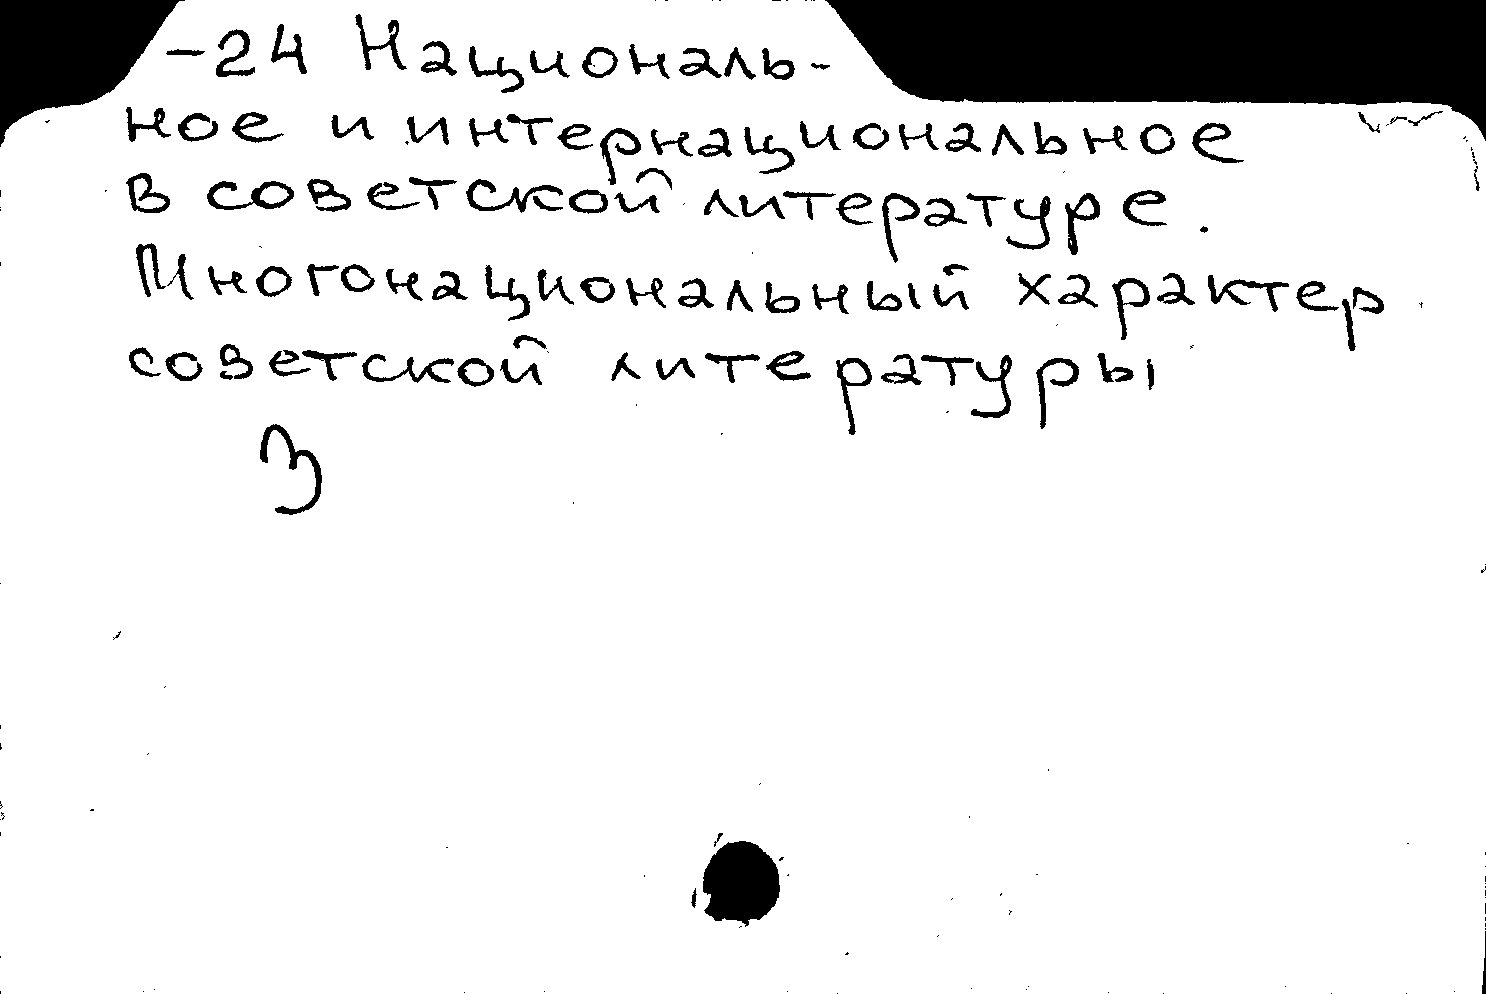 -24 Националь-
ное и интернациональное
в советской литературе.
Многонациональный характер
советской литературы
З